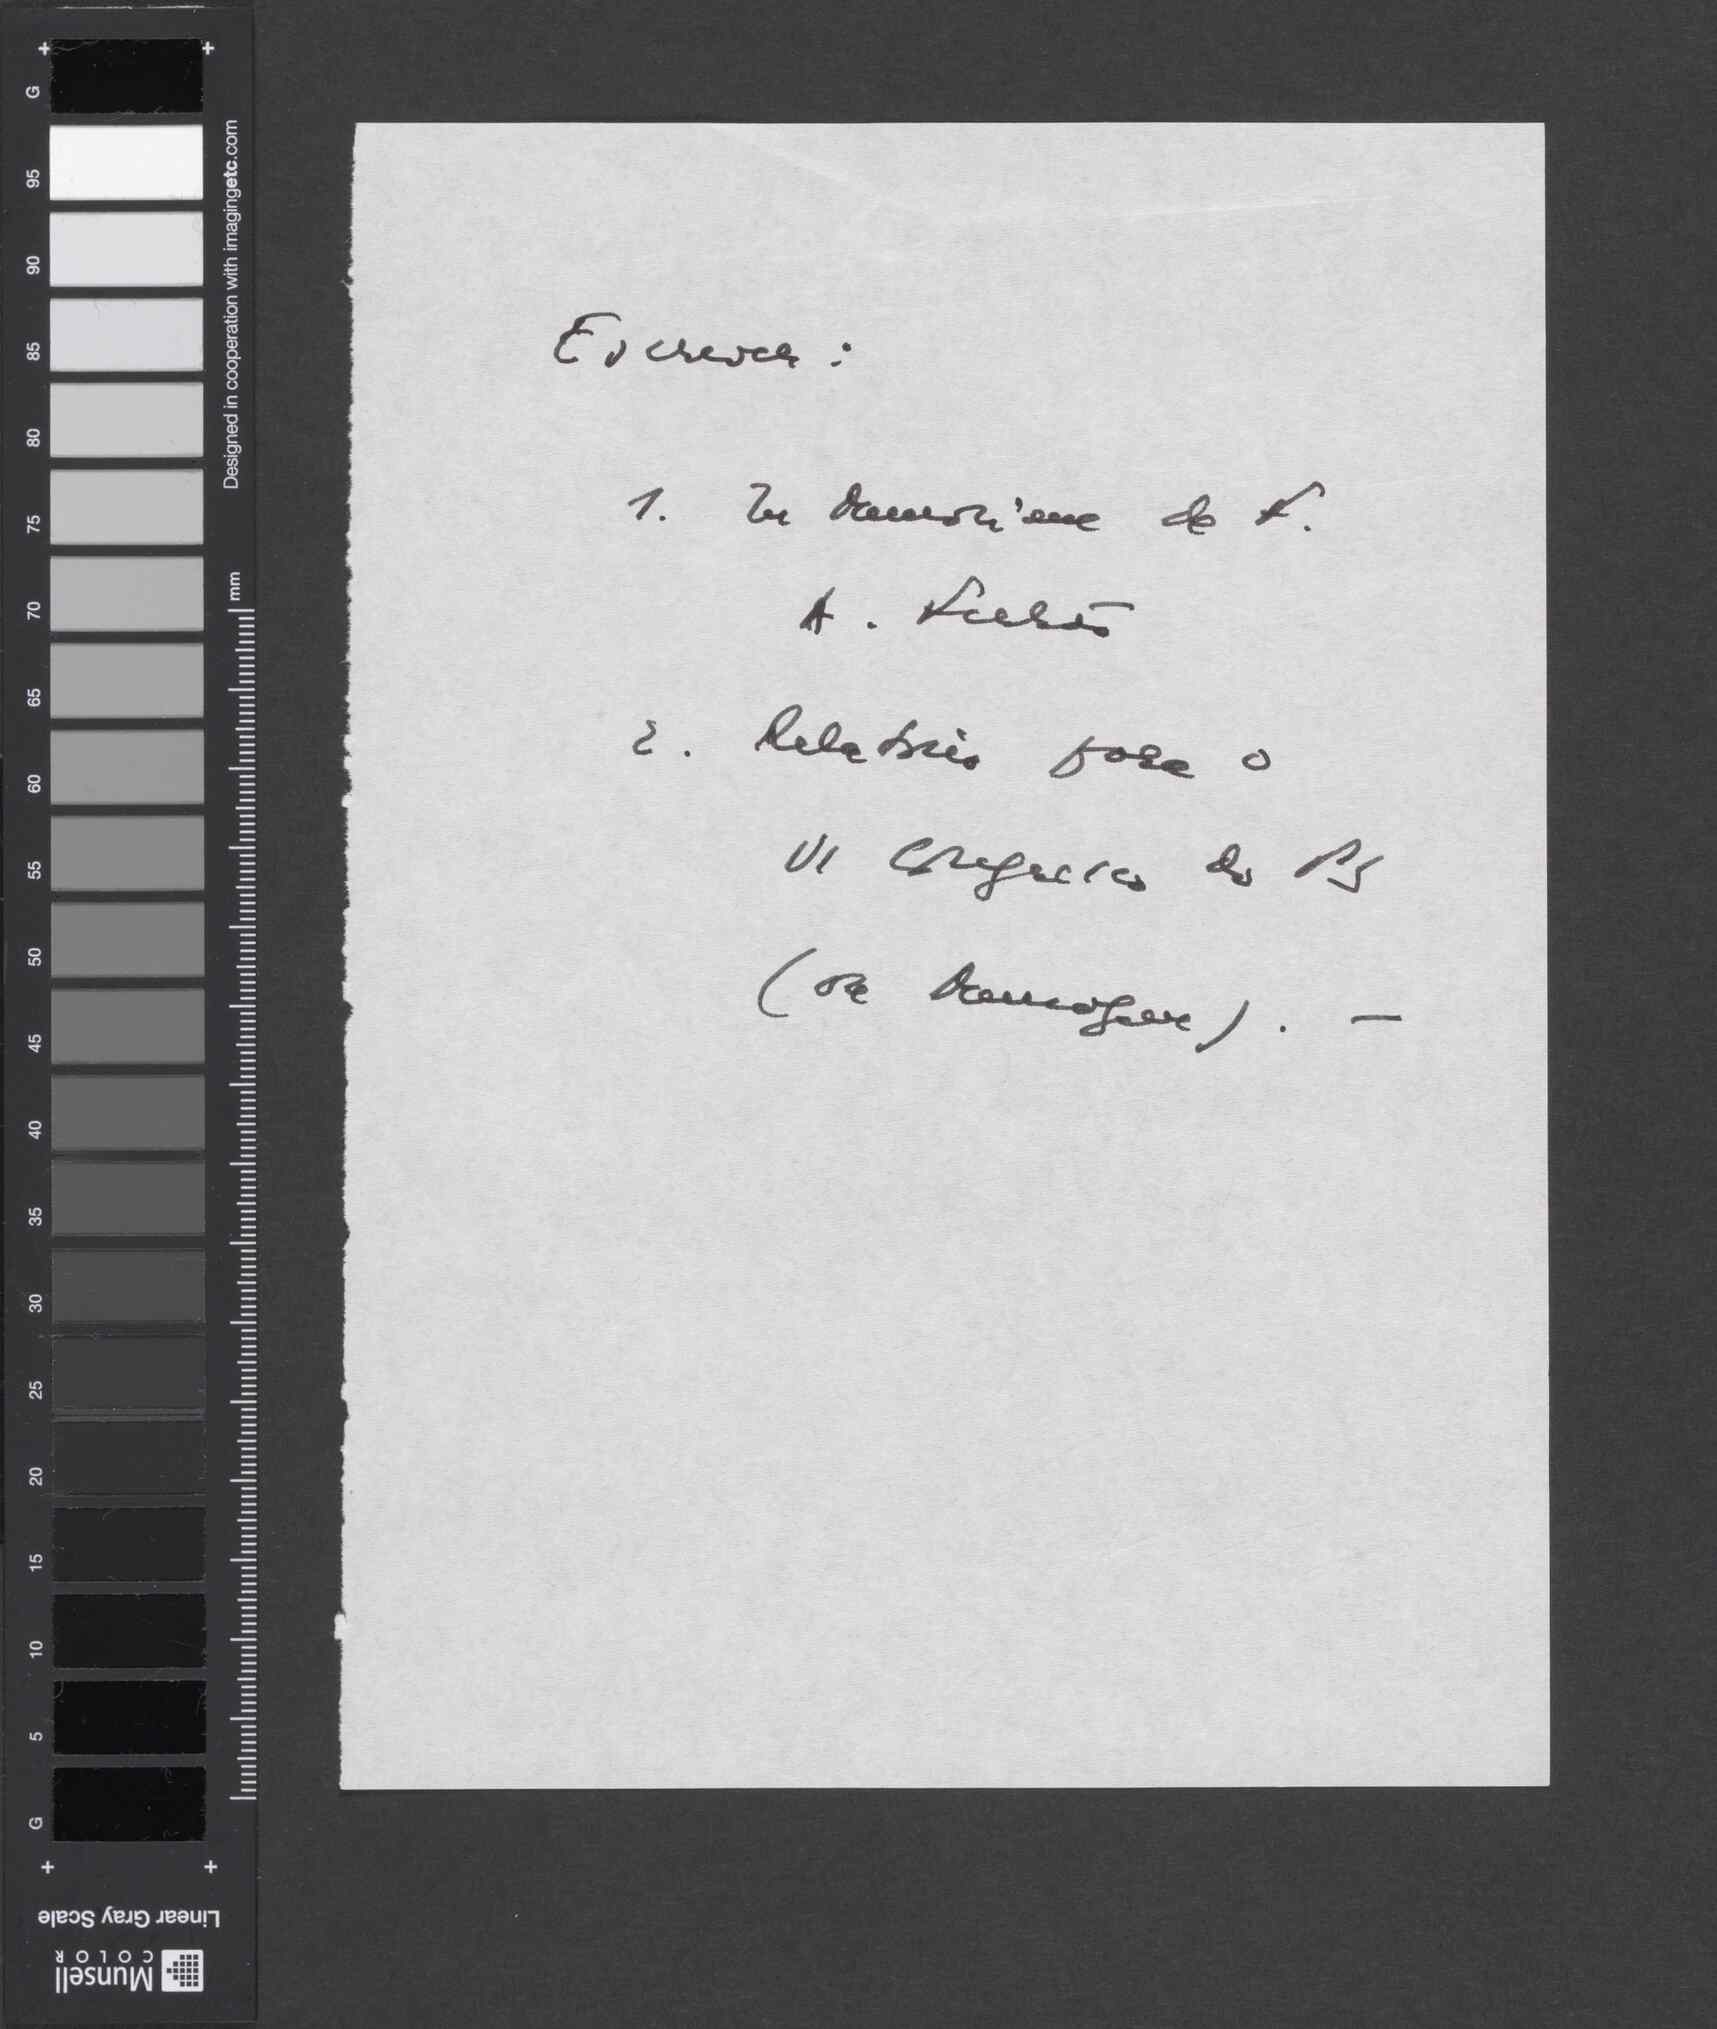 Escrever:
1. In memoriam de F.
A.
2. Relatório para o
VI Congresso do PS
(em
G 95 90 85 80 75 70 65 60 55 50 45 40 35 30 25 20 15 10 5 G
Designed in cooperation with imagingetc.com
mm
Linear Gray Scale
Munsell
COLOR